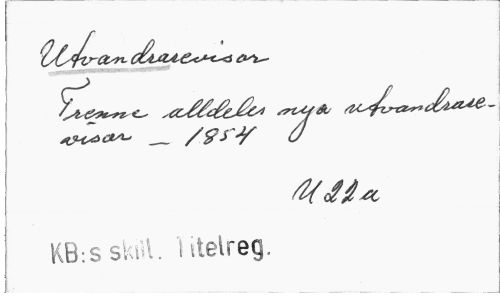 Utvandrarevisor
Trenne alldeles nya utvandrare-
visor - 1854
U 22 a
KB:s skill. Titelreg.